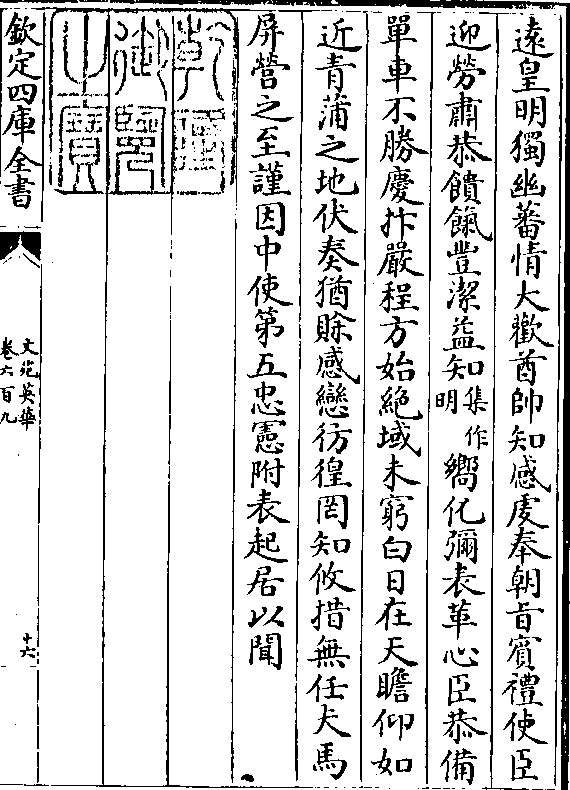 遠皇明獨幽蕃情大歡酋帥知感䖍奉朝旨賓禮使臣
迎勞肅恭饋餼豐潔益知集作明嚮化彌表革心臣恭備
單車不勝慶抃嚴程方始絶域未窮白日在天瞻仰如
近青蒲之地伏奏猶賒感戀彷徨罔知攸措無任犬馬
屏營之至謹因中使第五忠憲附表起居以聞
乾隆御覽之寶
欽定四庫全書
文苑英華
卷六百九
十六